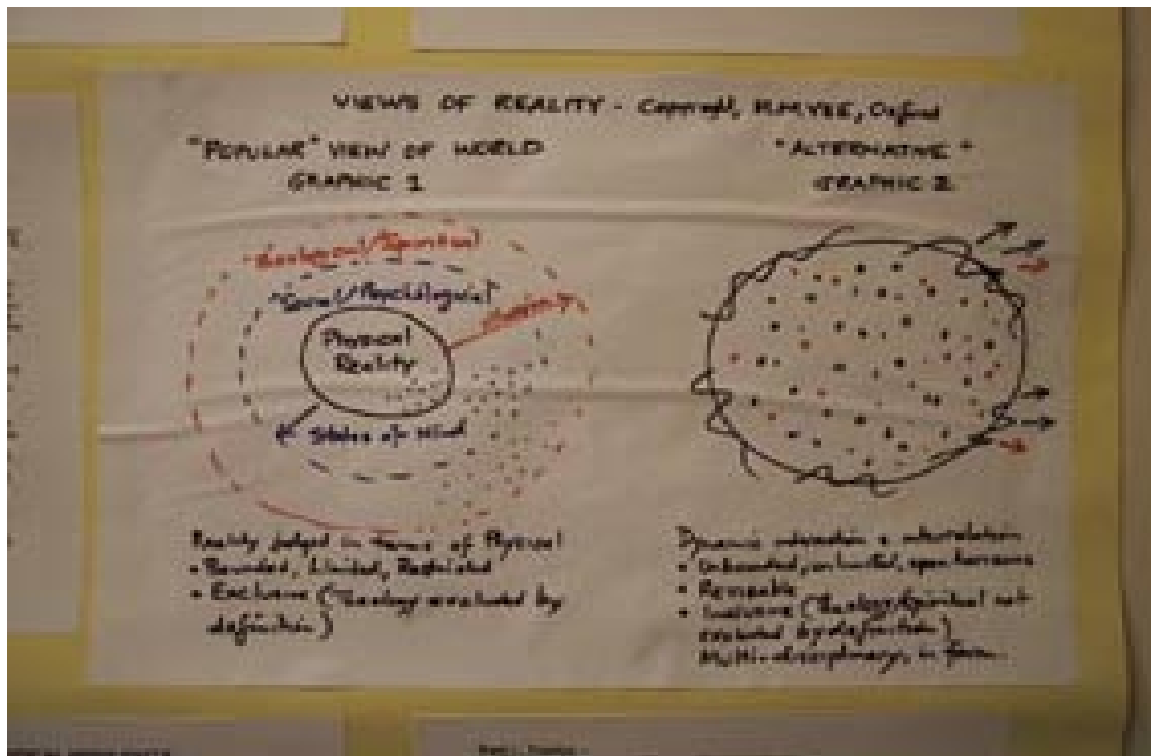 VIEWS OF REALITY - Copyright, H.M.YEE, Oxford
"POPULAR" VIEW OF WORLD
GRAPHIC 1
"ALTERNATIVE"
GRAPHIC 2
Theological/Spiritual
Social/Psychological
Physical
Reality
States of Mind
Reality judged in terms of Physical
• Bounded, Limited, Restricted
• Exclusive (Theology excluded by
definition)
Dynamic interaction & interrelation
• Unbounded, unlimited, open horizons
• Revisable
• Inclusive (Theology/Spiritual not
excluded by definition)
Multi-disciplinary in form.